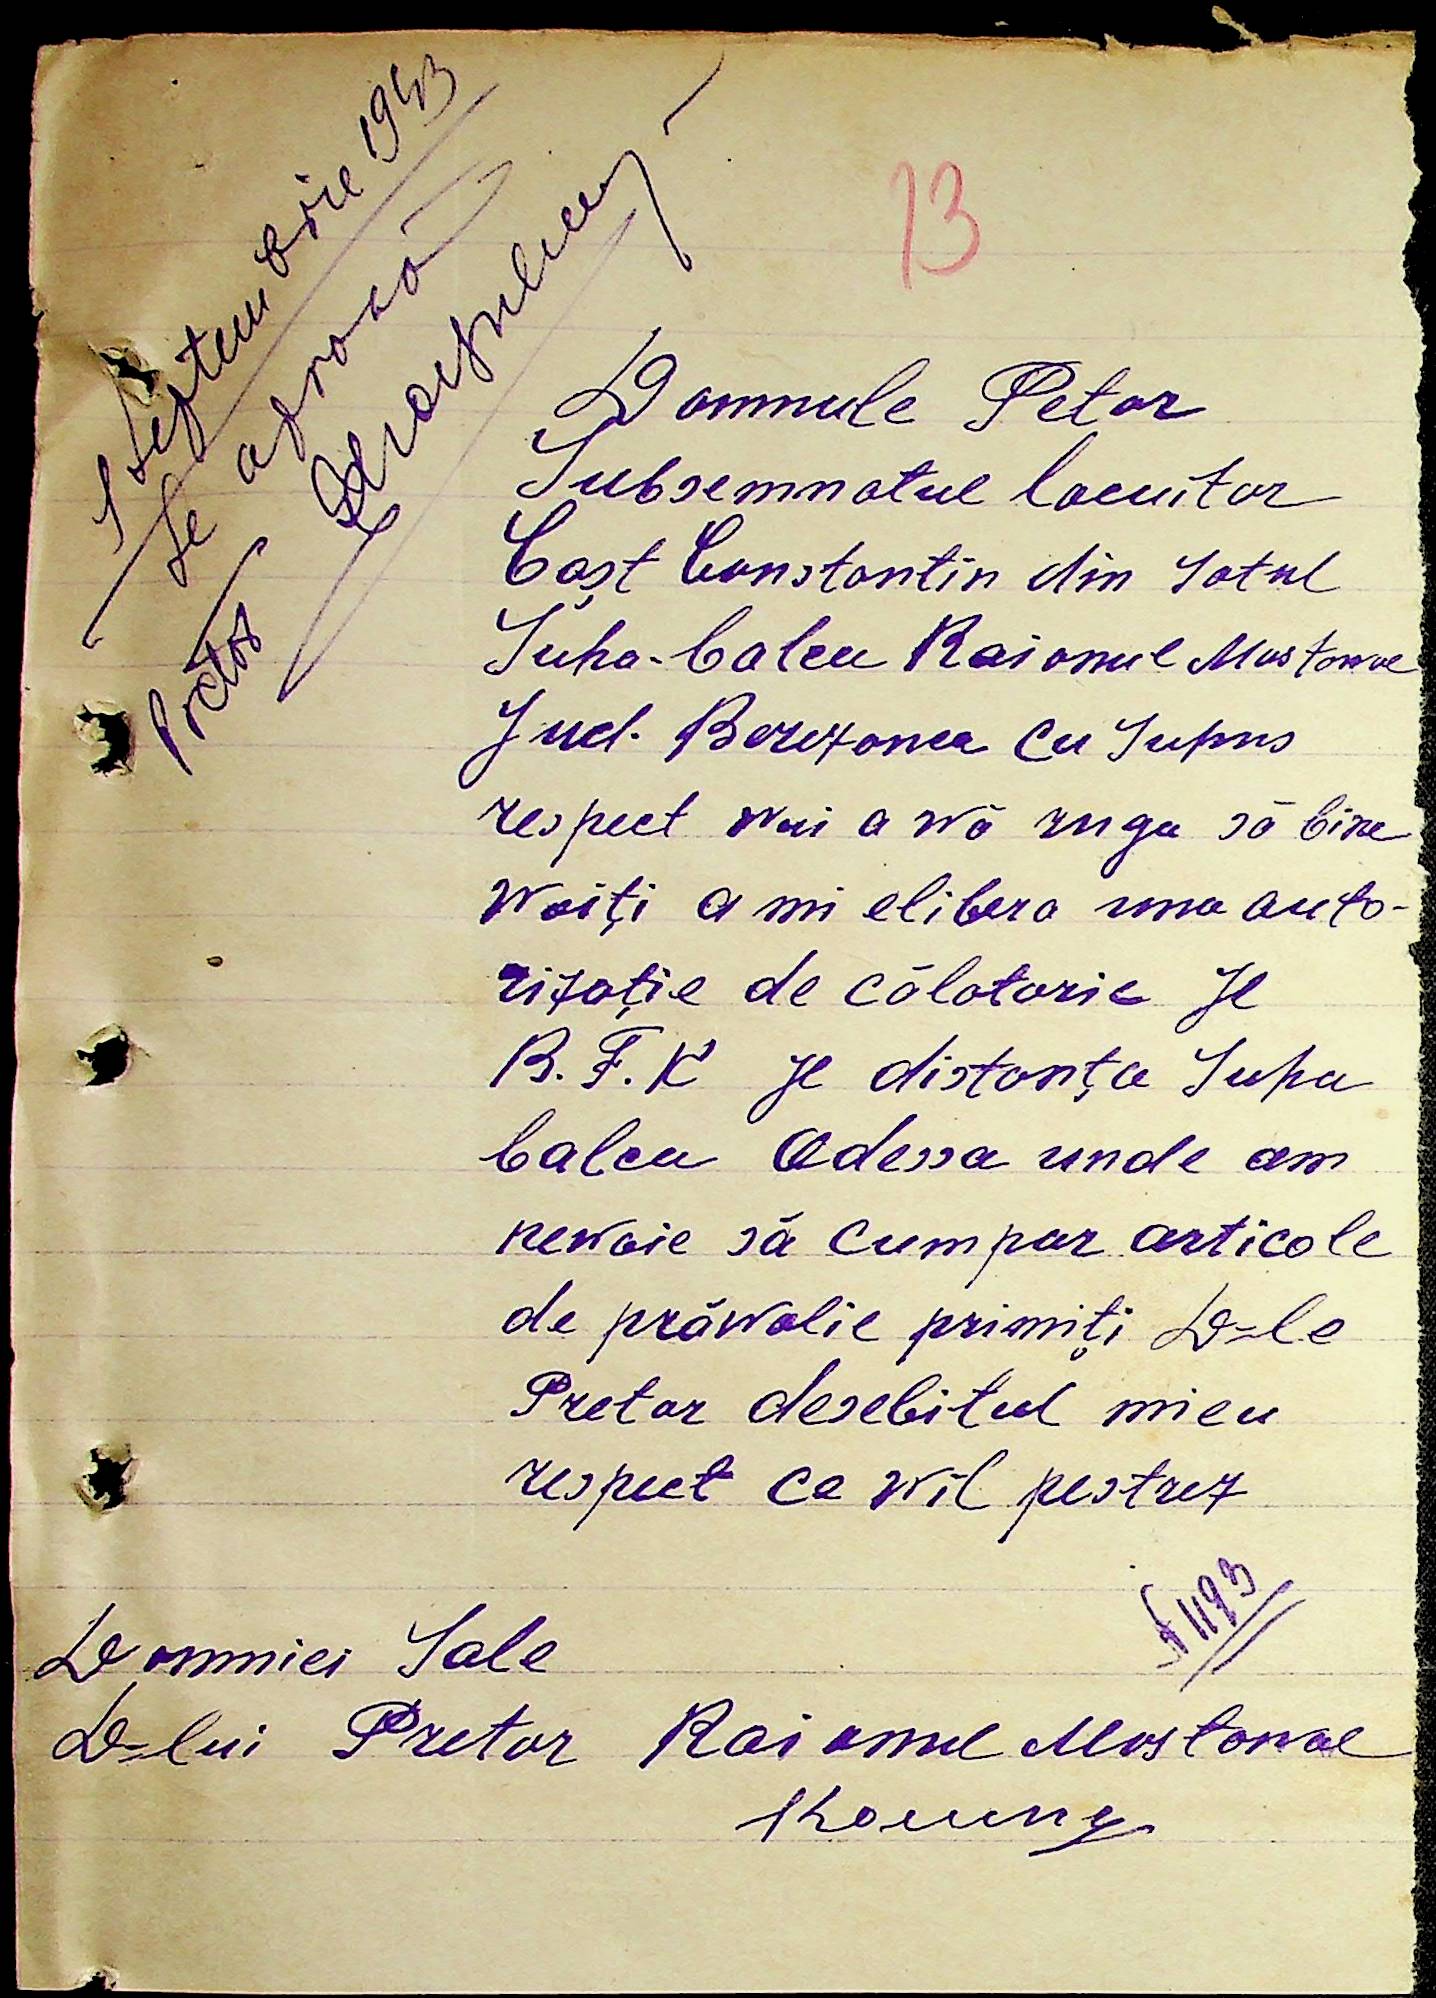 1 Septembrie 1943
Se aprobă
Pretor
13
Domnule Petor
Subsemnatul locuitor
Coșt Constantin din Satul
Suha-balca Raionul Mostowoe
Jud. Berezanca cu Supus
respect wai a wă ruga să bine
woiți a mi elibera una auto-
rizație de călatorie pe
B. F. K pe distanța Suha
balca Odessa unde am
newoie să cumpar articole
de prăwalie primiți D-le
Pretor deosebitul mieu
respect ce wil pestrez
N 1193
Domniei Sale
D-lui Pretor Raionul Mostowoe